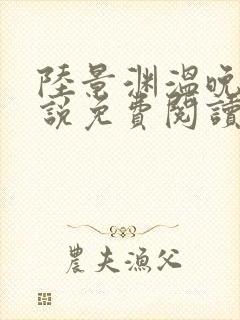 陸景渊溫晚
說免費閱讀
農夫漁父